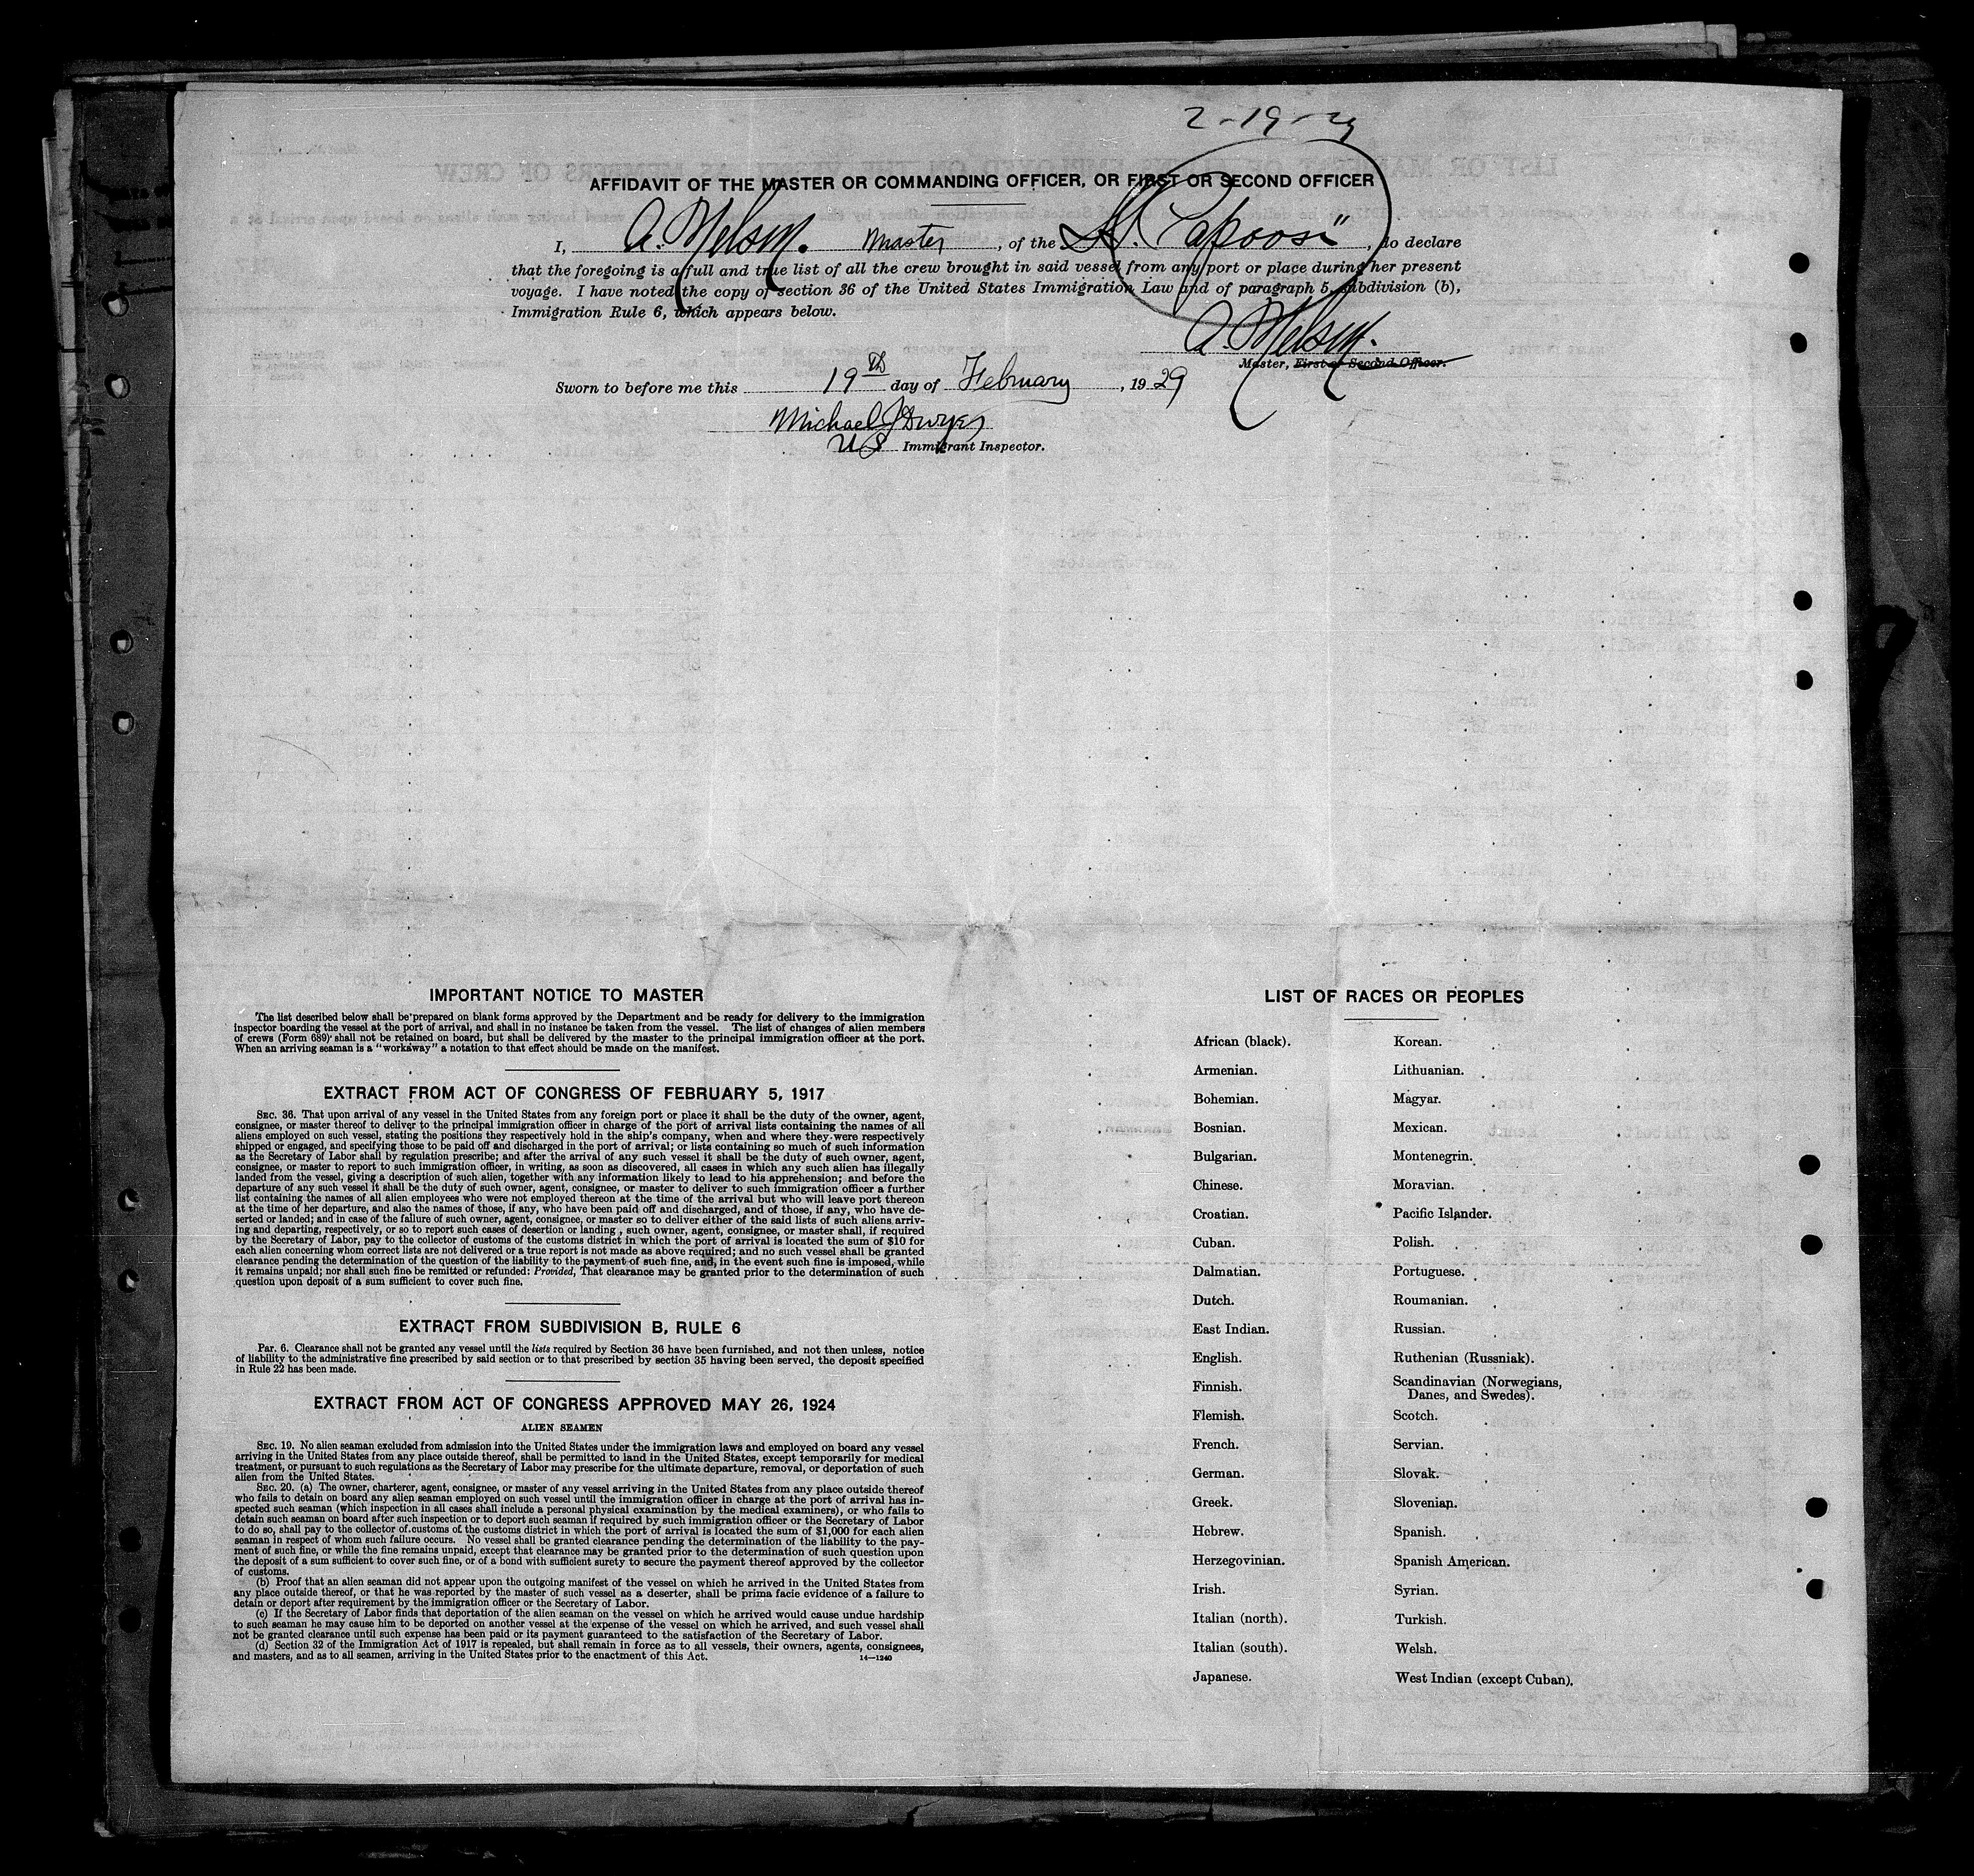 2-19-29
AFFIDAVIT OF THE MASTER OR COMMANDING OFFICER, OR FIRST OR SECOND OFFICER
I, A. Nelson. Master, of the "Capoosi", do declare
that the foregoing is a full and true list of all the crew brought in said vessel from any port or place during her present
voyage. I have noted the copy of section 36 of the United States Immigration Law and of paragraph 5, subdivision (b),
Immigration Rule 6, which appears below.
A. Nelson.
Master, First or Second Officer.
Sworn to before me this 19th day of February, 1929
Michael J Dwyer
US Immigrant Inspector.
IMPORTANT NOTICE TO MASTER
The list described below shall be prepared on blank forms approved by the Department and be ready for delivery to the immigration
inspector boarding the vessel at the port of arrival, and shall in no instance be taken from the vessel. The list of changes of alien members
of crews (Form 689) shall not be retained on board, but shall be delivered by the master to the principal immigration officer at the port.
When an arriving seaman is a "workaway" a notation to that effect should be made on the manifest.
EXTRACT FROM ACT OF CONGRESS OF FEBRUARY 5, 1917
SEC. 36. That upon arrival of any vessel in the United States from any foreign port or place it shall be the duty of the owner, agent,
consignee, or master thereof to deliver to the principal immigration officer in charge of the port of arrival lists containing the names of all
aliens employed on such vessel, stating the positions they respectively hold in the ship's company, when and where they were respectively
shipped or engaged, and specifying those to be paid off and discharged in the port of arrival; or lists containing so much of such information
as the Secretary of Labor shall by regulation prescribe; and after the arrival of any such vessel it shall be the duty of such owner, agent,
consignee, or master to report to such immigration officer, in writing, as soon as discovered, all cases in which any such alien has illegally
landed from the vessel, giving a description of such alien, together with any information likely to lead to his apprehension; and before the
departure of any such vessel it shall be the duty of such owner, agent, consignee, or master to deliver to such immigration officer a further
list containing the names of all alien employees who were not employed thereon at the time of the arrival but who will leave port thereon
at the time of her departure, and also the names of those, if any, who have been paid off and discharged, and of those, if any, who have de-
serted or landed; and in case of the failure of such owner, agent, consignee, or master so to deliver either of the said lists of such aliens arriv-
ing and departing, respectively, or so to report such cases of desertion or landing, such owner, agent, consignee, or master shall, if required
by the Secretary of Labor, pay to the collector of customs of the customs district in which the port of arrival is located the sum of $10 for
each alien concerning whom correct lists are not delivered or a true report is not made as above required; and no such vessel shall be granted
clearance pending the determination of the question of the liability to the payment of such fine, and, in the event such fine is imposed, while
it remains unpaid; nor shall such fine be remitted or refunded: Provided, That clearance may be granted prior to the determination of such
question upon deposit of a sum sufficient to cover such fine.
EXTRACT FROM SUBDIVISION B, RULE 6
Par. 6. Clearance shall not be granted any vessel until the lists required by Section 36 have been furnished, and not then unless, notice
of liability to the administrative fine prescribed by said section or to that prescribed by section 35 having been served, the deposit specified
in Rule 22 has been made.
EXTRACT FROM ACT OF CONGRESS APPROVED MAY 26, 1924
ALIEN SEAMEN
SEC. 19. No alien seaman excluded from admission into the United States under the immigration laws and employed on board any vessel
arriving in the United States from any place outside thereof, shall be permitted to land in the United States, except temporarily for medical
treatment, or pursuant to such regulations as the Secretary of Labor may prescribe for the ultimate departure, removal, or deportation of such
alien from the United States.
SEC. 20. (a) The owner, charterer, agent, consignee, or master of any vessel arriving in the United States from any place outside thereof
who fails to detain on board any alien seaman employed on such vessel until the immigration officer in charge at the port of arrival has in-
spected such seaman (which inspection in all cases shall include a personal physical examination by the medical examiners), or who fails to
detain such seaman on board after such inspection or to deport such seaman if required by such immigration officer or the Secretary of Labor
to do so, shall pay to the collector of customs of the customs district in which the port of arrival is located the sum of $1,000 for each alien
seaman in respect of whom such failure occurs. No vessel shall be granted clearance pending the determination of the liability to the pay-
ment of such fine, or while the fine remains unpaid, except that clearance may be granted prior to the determination of such question upon
the deposit of a sum sufficient to cover such fine, or of a bond with sufficient surety to secure the payment thereof approved by the collector
of customs.
(b) Proof that an alien seaman did not appear upon the outgoing manifest of the vessel on which he arrived in the United States from
any place outside thereof, or that he was reported by the master of such vessel as a deserter, shall be prima facie evidence of a failure to
detain or deport after requirement by the immigration officer or the Secretary of Labor.
(c) If the Secretary of Labor finds that deportation of the alien seaman on the vessel on which he arrived would cause undue hardship
to such seaman he may cause him to be deported on another vessel at the expense of the vessel on which he arrived, and such vessel shall
not be granted clearance until such expense has been paid or its payment guaranteed to the satisfaction of the Secretary of Labor.
(d) Section 32 of the Immigration Act of 1917 is repealed, but shall remain in force as to all vessels, their owners, agents, consignees,
and masters, and as to all seamen, arriving in the United States prior to the enactment of this Act.
14—1240
LIST OF RACES OR PEOPLES
African (black).
Armenian.
Bohemian.
Bosnian.
Bulgarian.
Chinese.
Croatian.
Cuban.
Dalmatian.
Dutch.
East Indian.
English.
Finnish.
Flemish.
French.
German.
Greek.
Hebrew.
Herzegovinian.
Irish.
Italian (north).
Italian (south).
Japanese.
Korean.
Lithuanian.
Magyar.
Mexican.
Montenegrin.
Moravian.
Pacific Islander.
Polish.
Portuguese.
Roumanian.
Russian.
Ruthenian (Russniak).
Scandinavian (Norwegians,
Danes, and Swedes).
Scotch.
Servian.
Slovak.
Slovenian.
Spanish.
Spanish American.
Syrian.
Turkish.
Welsh.
West Indian (except Cuban).